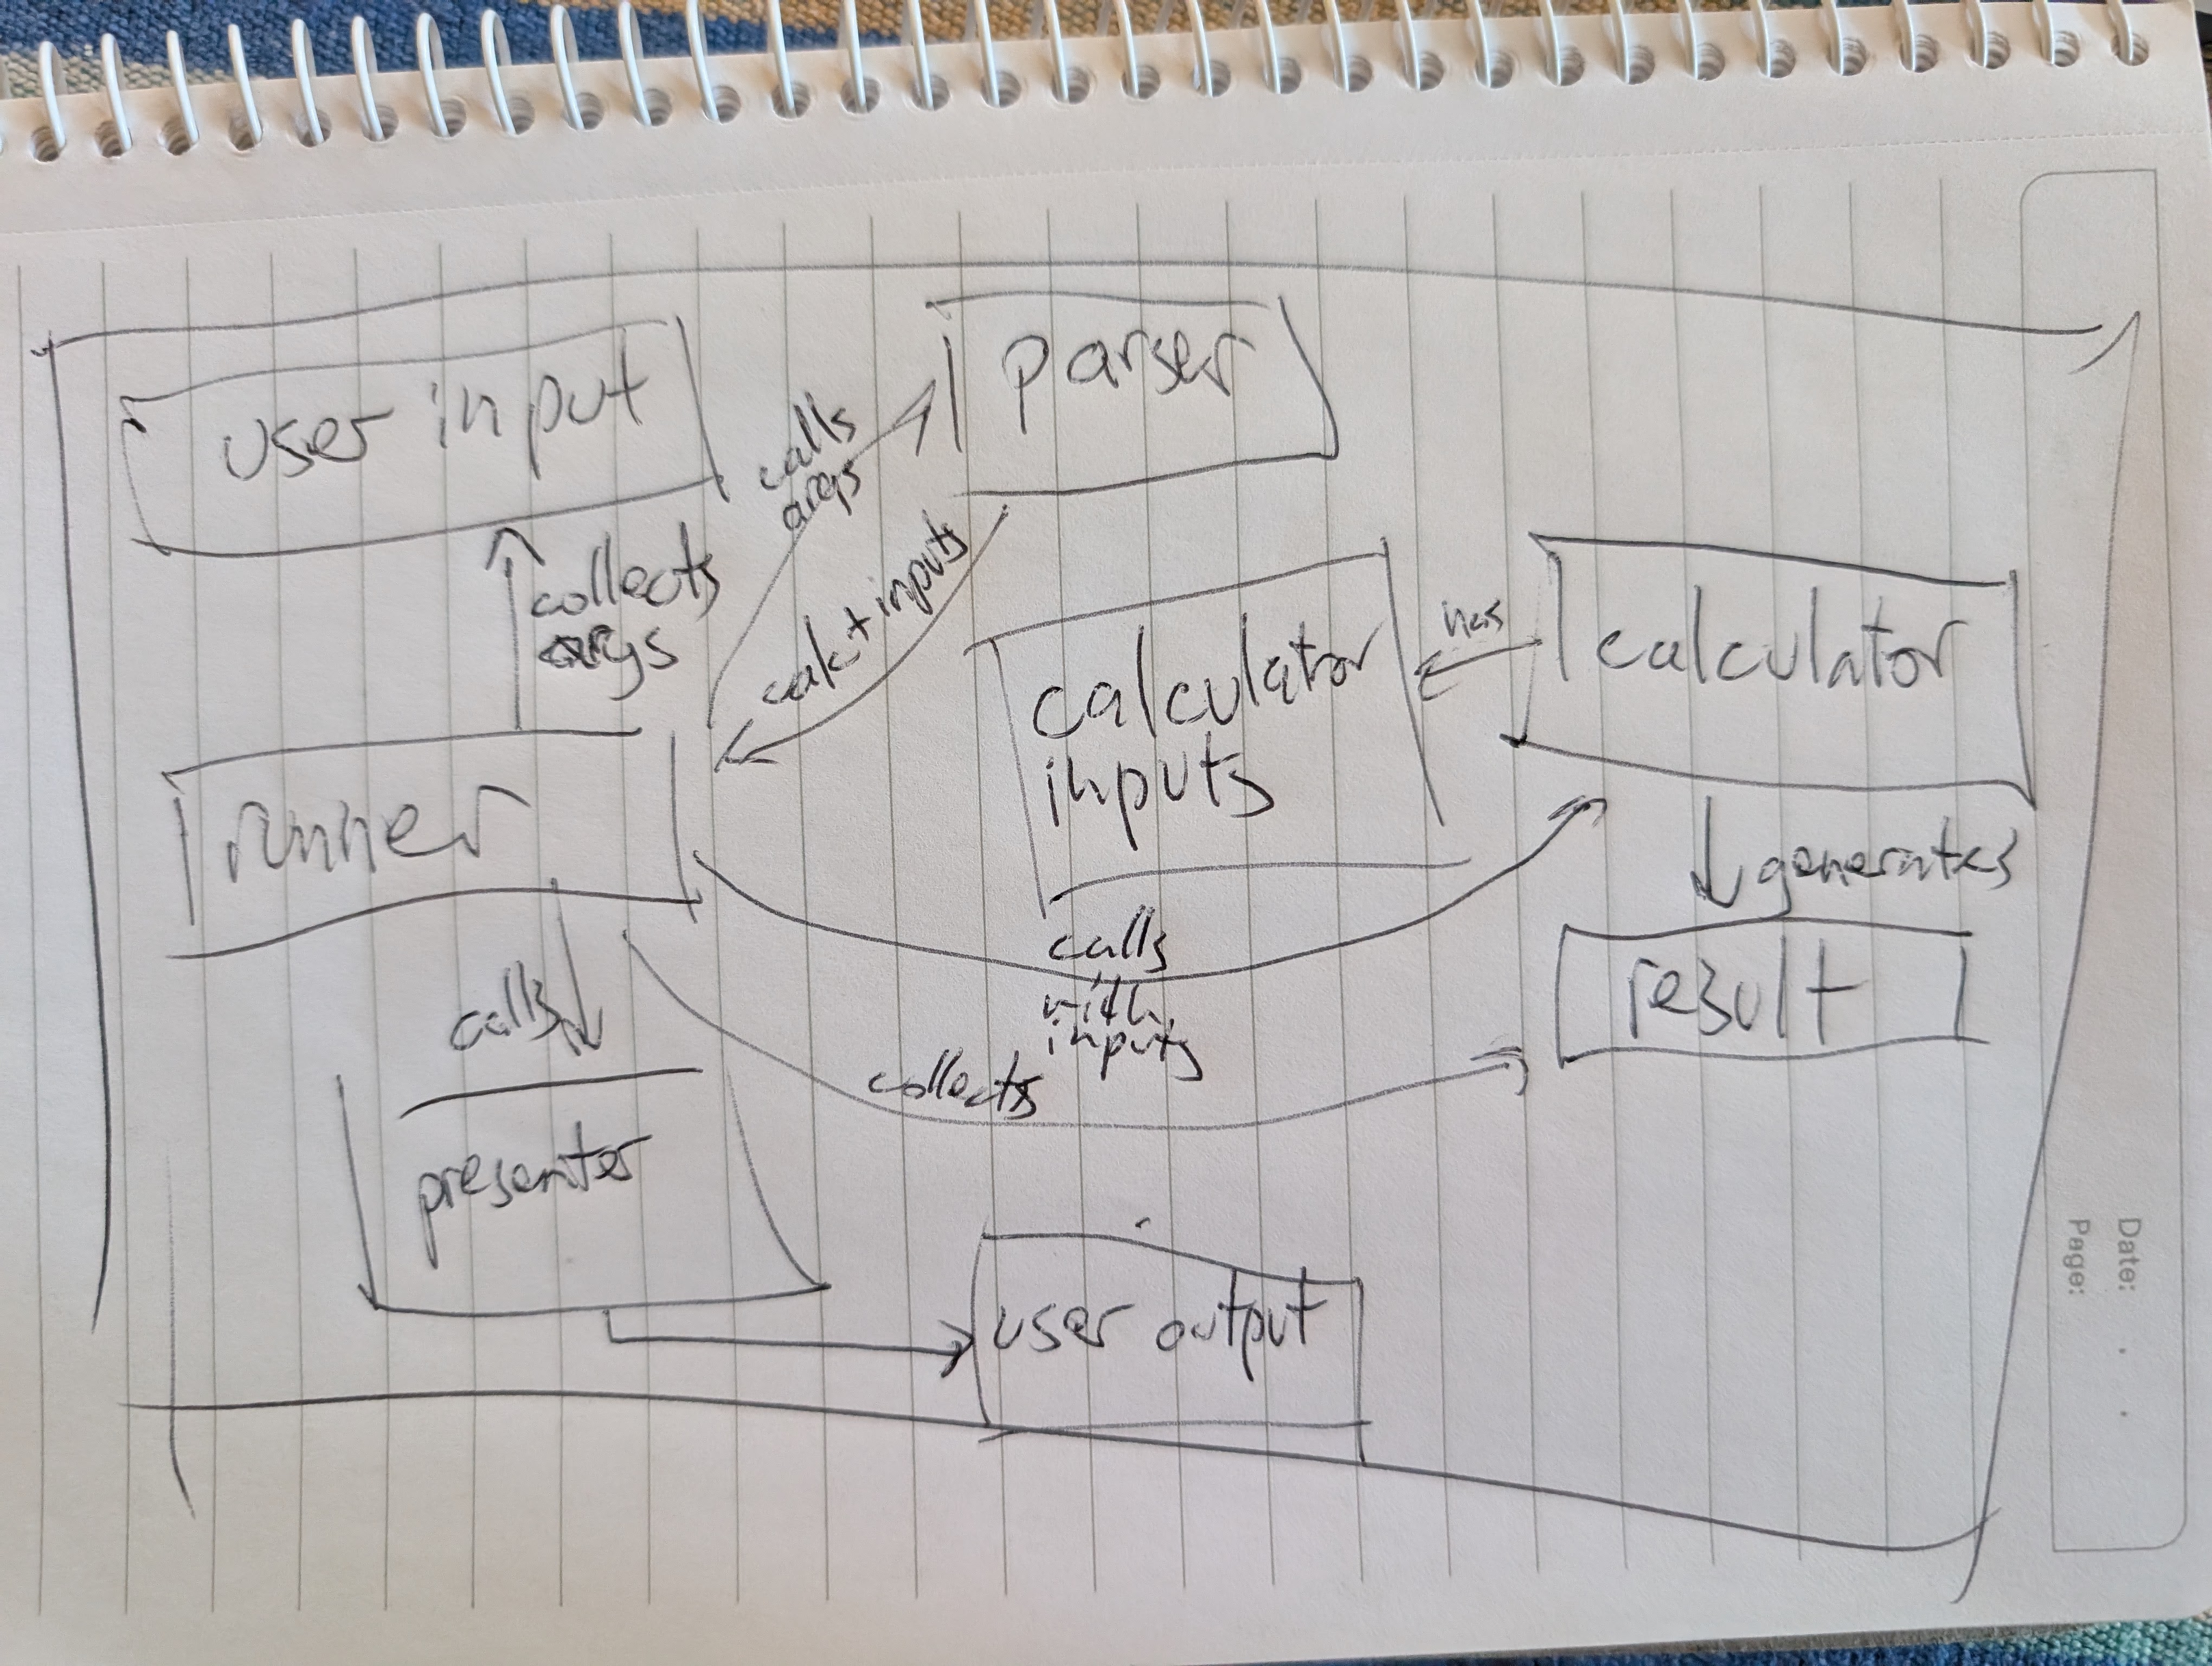 user input
parser
calls
args
collects
args
calc + inputs
calculator
inputs
has
calculator
runner
generates
result
calls
with
inputs
calls
collects
presenter
user output
Date: . .
Page: